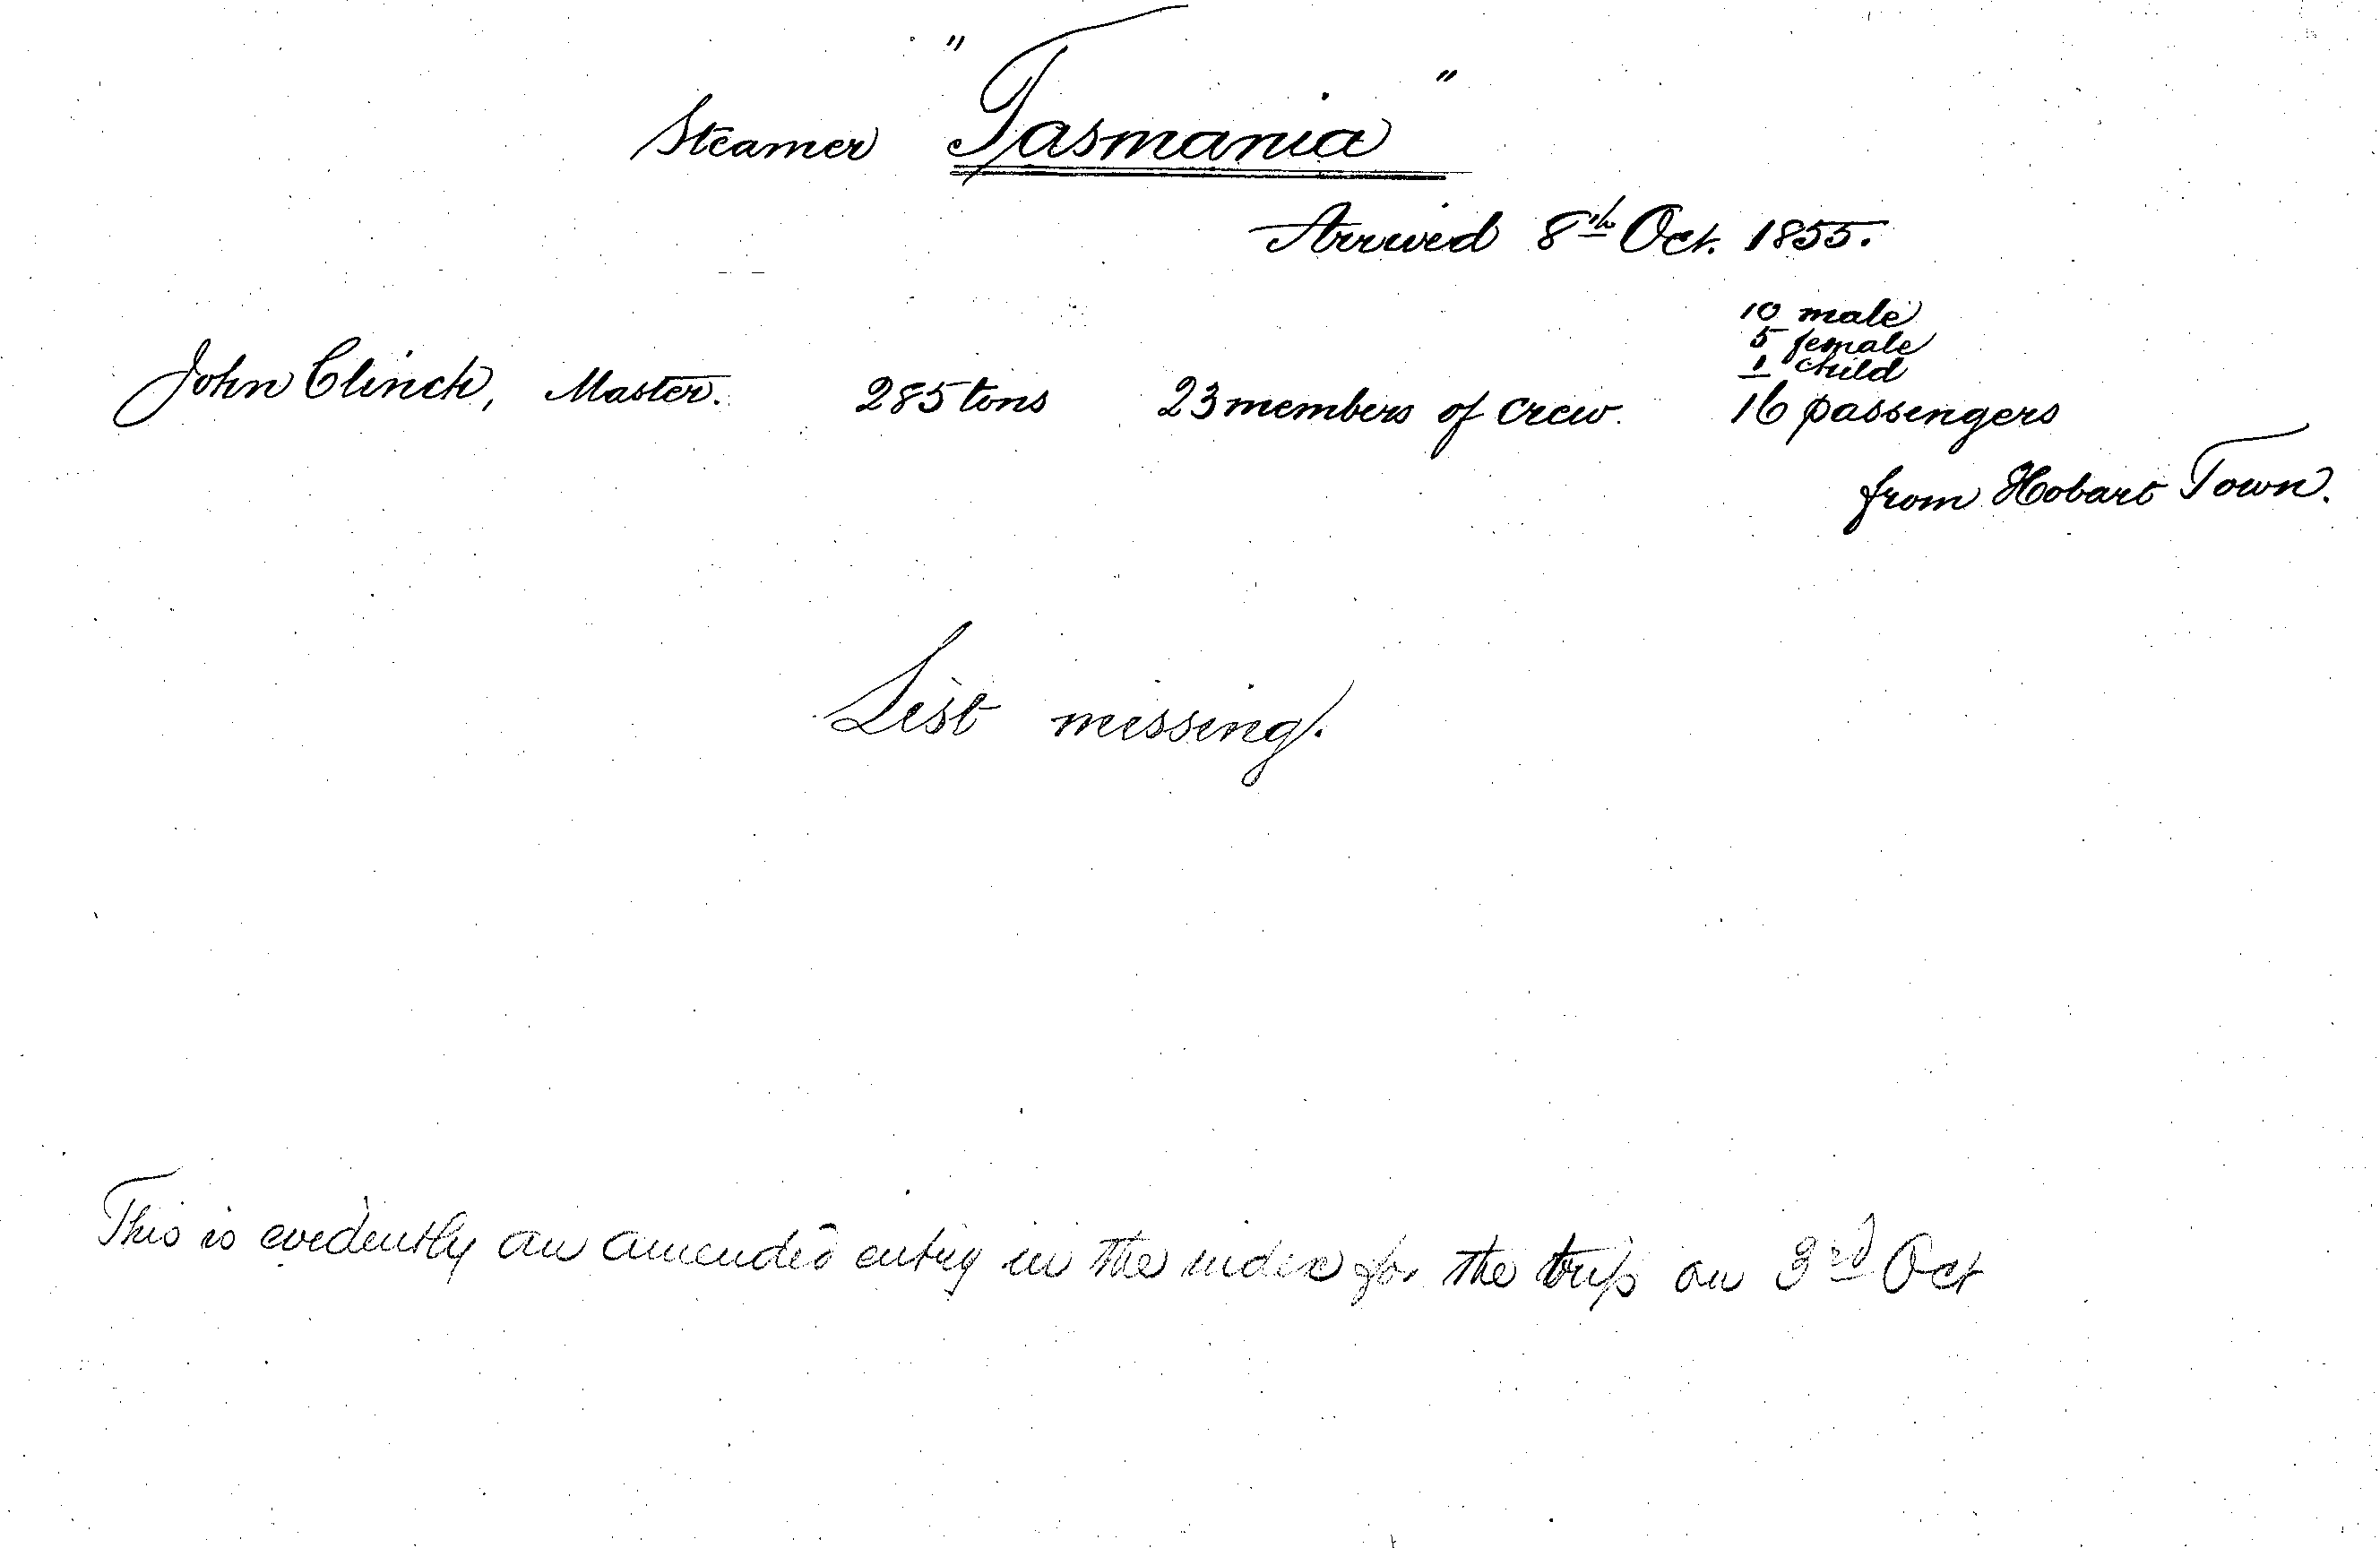 Steamer "Tasmania"
Arrived 8th Oct. 1855.
10 male
5 female
1 child
John Clinch, Master. 285 tons 23 members of crew. 16 passengers
from Hobart Town.
List missing.
This is evidently an amended entry in the index for the trip on 3rd Oct